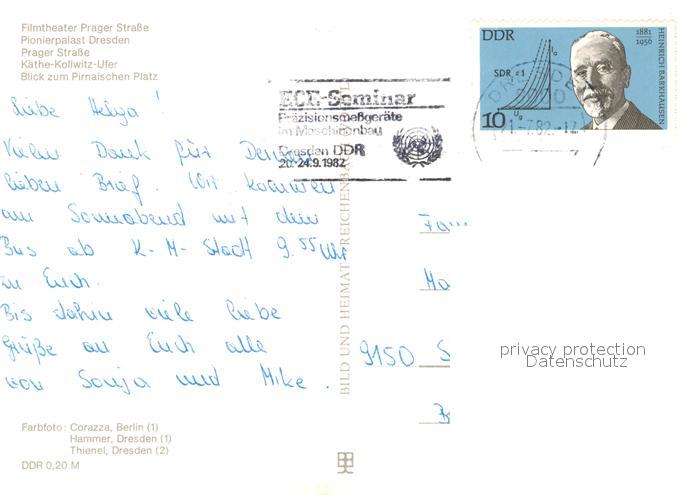 Filmtheater Prager Straße
Pionierpalast Dresden
Prager Straße
Käthe-Kollwitz-Ufer
Blick zum Pirnaischen Platz
Liebe Helga!
Vielen Dank für Deinen
lieben Brief. Wir kommen
am Sonnabend mit dem
Bus ab K-M-Stadt 9.55 Uhr
zu Euch.
Bis dahin viele liebe
Grüße an Euch alle
von Sonja und Mike.
Farbfoto: Corazza, Berlin (1)
Hammer, Dresden (1)
Thienel, Dresden (2)
DDR 0,20 M
BILD UND HEIMAT REICHENBACH
ECE-Seminar
Präzisionsmeßgeräte
im Maschinenbau
Dresden DDR
20.-24.9.1982
DDR
1881
1956
HEINRICH BARKHAUSEN
SDR = 1
Ia
Ug
10
DRESDEN
Fam
9150 S
privacy protection
Datenschutz